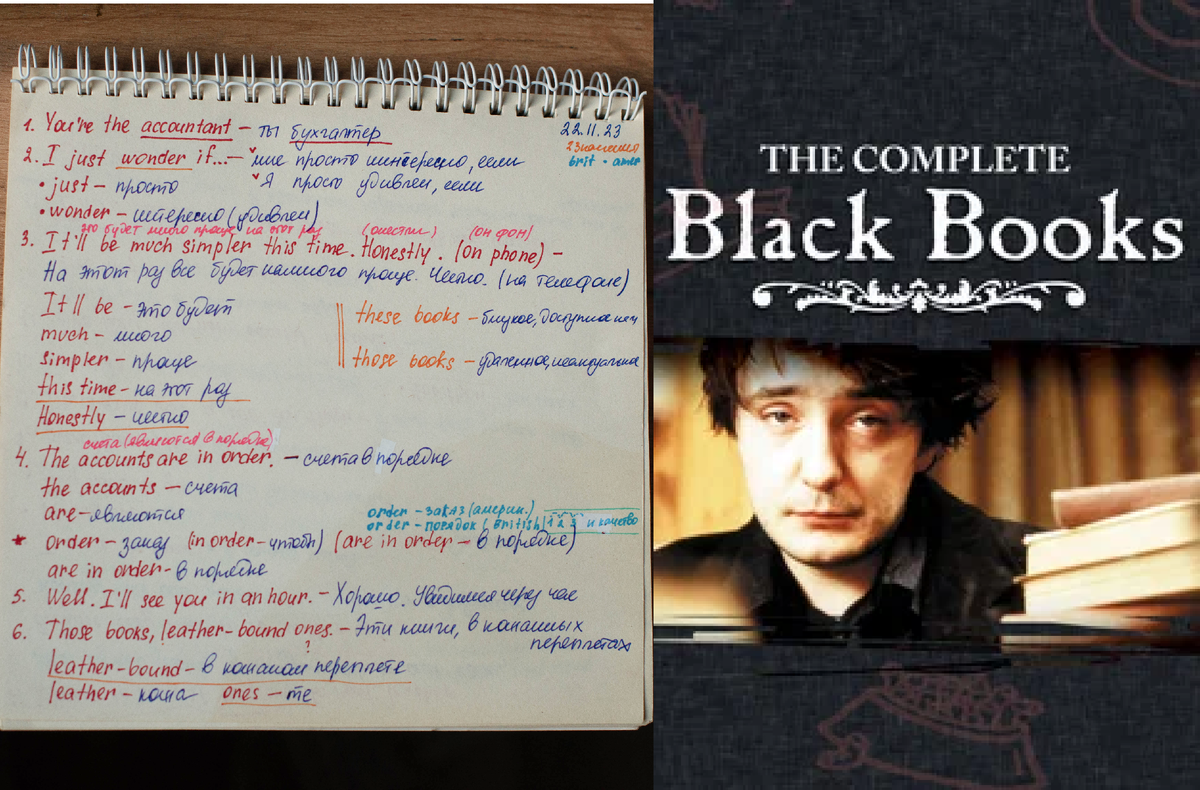 22.11.23
2 значения
brit • amer
1. You're the accountant – ты бухгалтер
2. I just wonder if... – мне просто интересно, если
• just – просто Я просто удивлен, если
• wonder – интересно (удивлен)
это будет много проще на этот раз (онестли) (он фон)
3. It'll be much simpler this time. Honestly. (on phone) –
На этот раз все будет намного проще. Честно. (на телефоне)
It'll be – это будет
much – много
simpler – проще
this time – на этот раз
Honestly – честно
these books – близкое, доступное
those books – удаленное,
счета (являются в порядке)
4. The accounts are in order. – счета в порядке
the accounts – счета
are – являются
order – заказ (америк.)
order – порядок (British) 1 2 3 и качество
* order – заказ (in order – чтобы) (are in order – в порядке)
are in order – в порядке
5. Well. I'll see you in an hour. – Хорошо. Увидимся через час
6. Those books, leather-bound ones. – Эти книги, в кожаных
переплетах
?
leather-bound – в кожаном переплете
leather – кожа ones – те
THE COMPLETE
Black Books